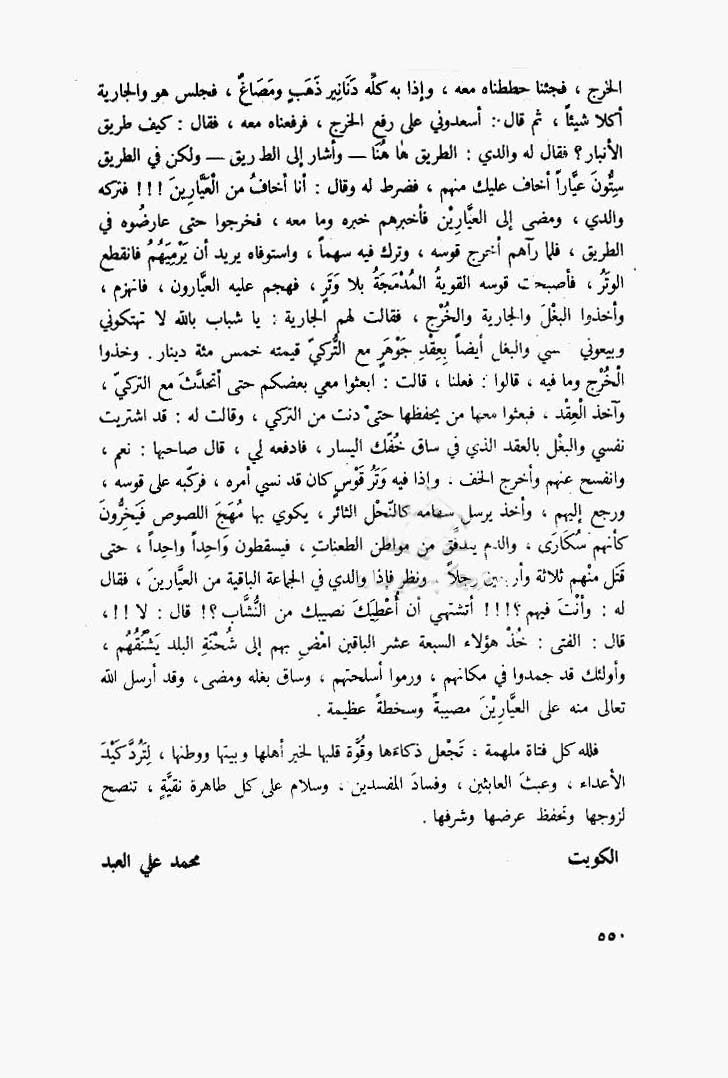 الخرج ، فجئنا حططناه معه ، وإذا به كلِّه دَنَانِير ذَهَبٍ ومَصَاغٌ ، فجلس هو والجارية
أكلا شيئاً ، ثم قال : أسعدوني على رفع الخرج ، فرفعناه معه ، فقال : كيف طريق
الأنبار ؟ فقال له والدي : الطريق هَا هُنَا — وأشار إلى الطريق — ولكن في الطريق
سِتُّونَ عيَّاراً أخاف عليك منهم ، فضرط له وقال : أنا أخافُ من الْعَيَّارِينَ !!! فتركه
والدي ، ومضى إلى العيَّارِيْن فأخبرهم خبره وما معه ، فخرجوا حتى عارضُوه في
الطريق ، فلما رآهم أخرج قوسه ، وترك فيه سهماً ، واستوفاه يريد أن يَرْمِيَهُمُ فانقطع
الوتَرُ ، فأصبحت قوسه القويةُ المُدْمَجَةُ بلا وَتَرٍ ، فهجم عليه العيَّارون ، فانهزم ،
وأخذوا البغْلَ والجارية والخُرْج ، فقالت لهم الجارية : يا شباب بالله لا تهتكوني
وبيعوني سي والبغل أيضاً بِعِقْدِ جَوْهَرٍ مع التُّركيّ قيمته خمس مئة دينار . وخذوا
الْخُرْج وما فيه ، قالوا : فعلنا ، قالت : ابعثوا معي بعضكم حتى أتحدَّثَ مع التركيّ ،
وآخذ الْعِقْد ، فبعثوا معها من يحفظها حتى دنت من التركي ، وقالت له : قد اشتريت
نفسي والبغْل بالعقد الذي في ساق خُفّك اليسار ، فادفعه لِي ، قال صاحبها : نعم ،
وانفسح عنهم وأخرج الخف . وإذا فيه وَتَرُ قَوْسٍ كان قد نسي أمره ، فركّبه على قوسه ،
ورجع إليهم ، وأخذ يرسل سهامه كالنّحْل الثائر ، يكوي بها مُهَجَ اللصوص فَيَخِرُّونَ
كأنهم سُكَارَى ، والدم يتدفَّق من مواطن الطعناتِ ، فيسقطون وَاحِداً واحِداً ، حتى
قَتَل منْهم ثلاثة وأربعين رجلاً . ونظر فإذا والدي في الجماعة الباقية من العيَّارينَ ، فقال
له : وأنْتَ فيهم ؟!!! أتشتهي أن أُعْطِيَكَ نصيبك من النُّشَّاب ؟! قال : لا !! ،
قال : الفتى : خُذْ هؤلاء السبعة عشر الباقين امْضِ بهم إلى شُحْنَةِ البلد يَشْنُقُهُم ،
وأولئك قد جمدوا في مكانهم ، ورموا أسلحتهم ، وساق بغله ومضى ، وقد أرسل الله
تعالى منه على العيَّارِيْنَ مصيبةً وسخطةً عظيمة .
فلله كل فتاة ملهمة ، تَجْعل ذكاءَها وقُوَّة قلبها لخير أهلها وبيتها ووطنها ، لِتَرُدَّ كَيْدَ
الأعداء ، وعبثَ العابثين ، وفسادَ المفسدين ، وسلام على كل طاهرة نقيَّةٍ ، تنصح
لزوجها وتحفظ عرضها وشرفها .
الكويت محمد علي العبد
٥٥٠